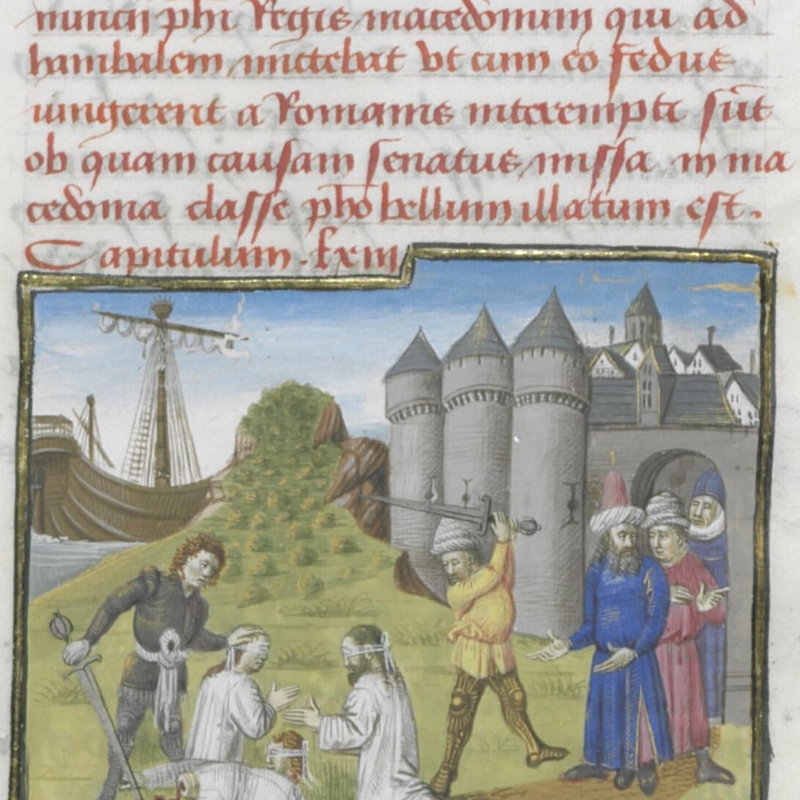 nuncij phi Regis macedonum qui ad
hanibalem mittebat vt cum eo fedus
iungerent a Romanis interempti sūt
ob quam causam senatus missa in ma
cedonia classe pho bellum illatum est.
Capitulum .lxiii